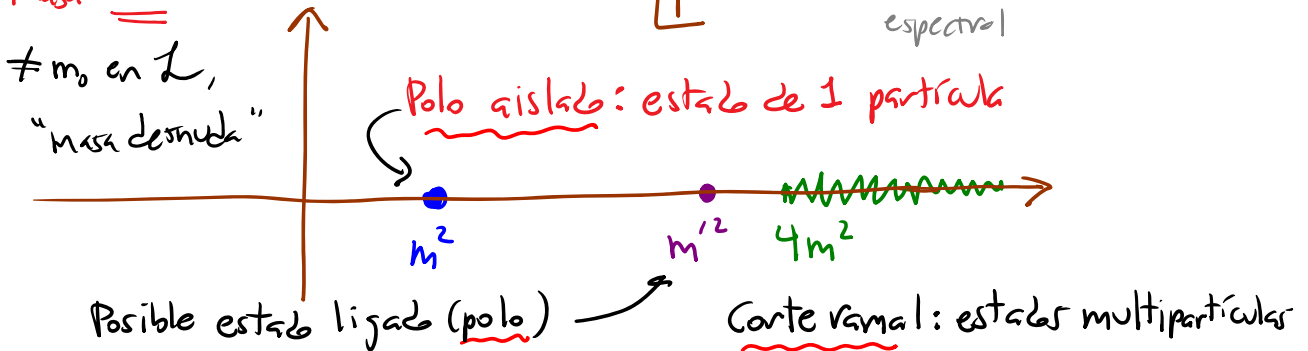 espectral
≠ m₀ en ℒ,
"masa desnuda"
Polo aislado: estado de 1 partícula
m²
m'²
4m²
Posible estado ligado (polo)
Corte ramal: estados multipartículas